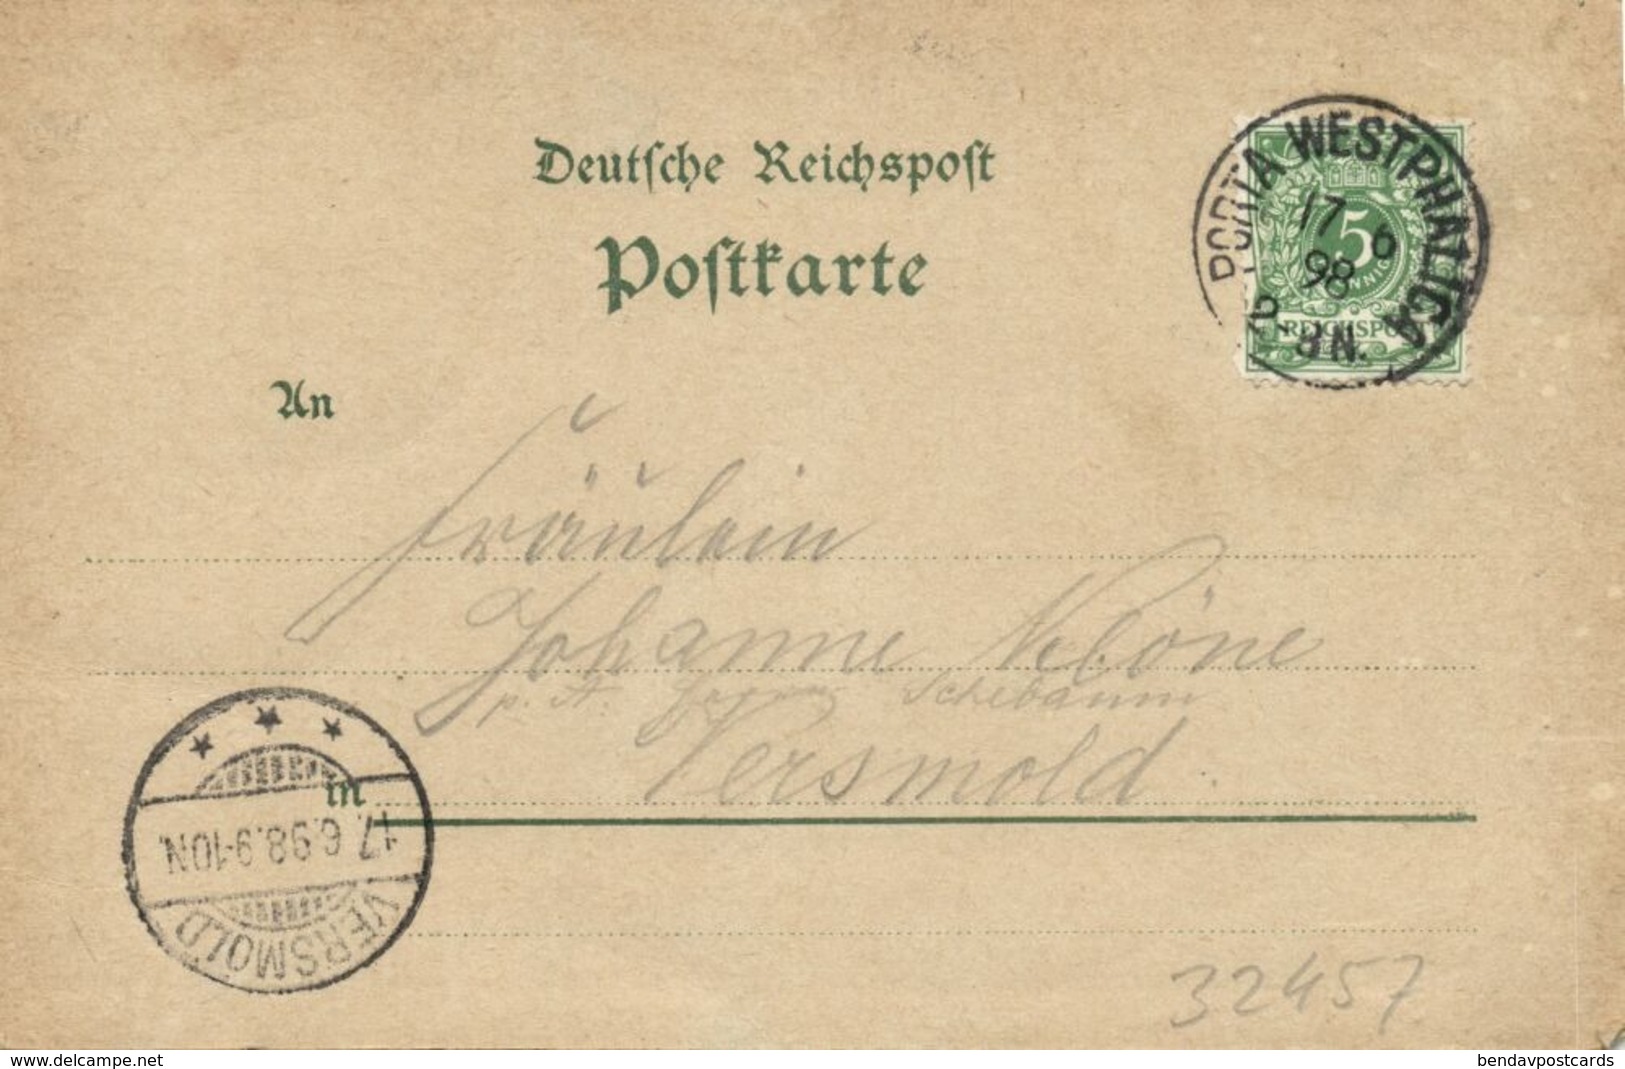 Deutsche Reichspost
Postkarte
PORTA WESTPHALICA
17 6
98
2-3N.
5
PFENNIG
REICHSPOST
An
Fräulein
Johanne Kleöne
p. A. Schebaum
Versmold.
in
17.6.98.9-10N.
VERSMOLD
32457
delcampe.net
bendavpostcards